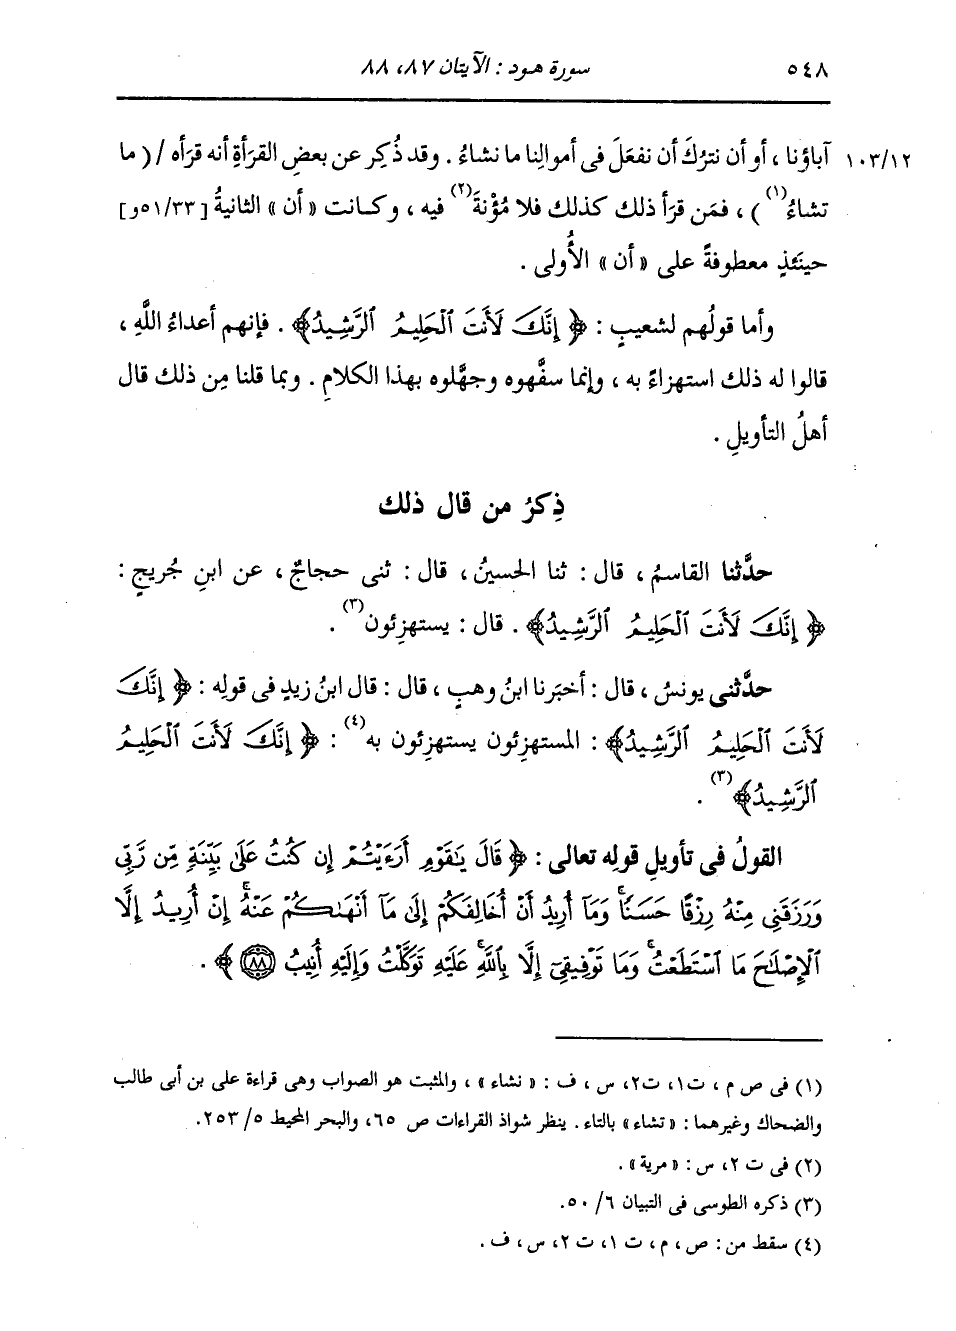 ٥٤٨ سورة هود : الآيتان ٨٧، ٨٨
١٠٣/١٢ آباؤنا ، أو أن نترُكَ أن نفعَلَ فى أموالِنا ما نشاءُ . وقد ذُكِر عن بعضِ القرَأةِ أنه قرَأه / ( ما
تشاءُ(١) ) ، فمَن قرَأ ذلك كذلك فلا مُؤْنةَ(٢) فيه ، وكانت « أن » الثانيةُ [٥١/٣٣و]
حينَئذٍ معطوفةً على « أن » الأُولى .
وأما قولُهم لشعيبٍ : ﴿ إِنَّكَ لَأَنتَ ٱلْحَلِيمُ ٱلرَّشِيدُ ﴾ . فإنهم أعداءُ اللَّهِ ،
قالوا له ذلك استهزاءً به ، وإنما سفَّهوه وجهَّلوه بهذا الكلامِ . وبما قلنا مِن ذلك قال
أهلُ التأويلِ .
ذِكرُ من قال ذلك
حدَّثنا القاسمُ ، قال : ثنا الحسينُ ، قال : ثنى حجاجٌ ، عن ابنِ جُريجٍ :
﴿ إِنَّكَ لَأَنتَ ٱلْحَلِيمُ ٱلرَّشِيدُ ﴾ . قال : يستهزِئون(٣) .
حدَّثنى يونسُ ، قال : أخبَرنا ابنُ وهبٍ ، قال : قال ابنُ زيدٍ فى قولِه : ﴿ إِنَّكَ
لَأَنتَ ٱلْحَلِيمُ ٱلرَّشِيدُ ﴾ : المستهزِئون يستهزِئون به(٤) : ﴿ إِنَّكَ لَأَنتَ ٱلْحَلِيمُ
ٱلرَّشِيدُ ﴾(٣) .
القولُ فى تأويلِ قولِه تعالى : ﴿ قَالَ يَٰقَوْمِ أَرَءَيْتُمْ إِن كُنتُ عَلَىٰ بَيِّنَةٍ مِّن رَّبِّى
وَرَزَقَنِى مِنْهُ رِزْقًا حَسَنًا ۚ وَمَآ أُرِيدُ أَنْ أُخَالِفَكُمْ إِلَىٰ مَآ أَنْهَىٰكُمْ عَنْهُ ۚ إِنْ أُرِيدُ إِلَّا
ٱلْإِصْلَٰحَ مَا ٱسْتَطَعْتُ ۚ وَمَا تَوْفِيقِىٓ إِلَّا بِٱللَّهِ ۚ عَلَيْهِ تَوَكَّلْتُ وَإِلَيْهِ أُنِيبُ ٨٨ ﴾ .
(١) فى ص م ، ت١، ت٢، س ، ف : « نشاء » ، والمثبت هو الصواب وهى قراءة على بن أبى طالب
والضحاك وغيرهما : « تشاء » بالتاء . ينظر شواذ القراءات ص ٦٥، والبحر المحيط ٥/ ٢٥٣.
(٢) فى ت ٢، س : « مرية » .
(٣) ذكره الطوسى فى التبيان ٦/ ٥٠.
(٤) سقط من : ص ، م ، ت ١، ت ٢، س ، ف .